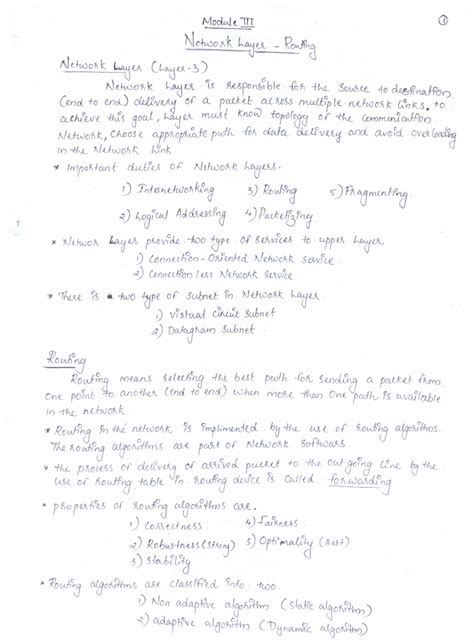 Module III
①
Network Layer - Routing
Network Layer (Layer-3)
Network Layer is responsible for the source to destination
(end to end) delivery of a packet across multiple network links. to
achieve this goal, Layer must know topology of the communication
Network, choose appropriate path for data delivery and avoid overloading
in the Network Link.
* Important duties of Network Layers.
1) Internetworking 3) Routing 5) Fragmenting
2) Logical Addressing 4) Packetizing
* Networ Layer provide two type of services to upper Layer,
1) Connection-Oriented Network service
2) Connection less Network service
* There is two type of subnet in Network Layer
1) Virtual Circuit Subnet
2) Datagram Subnet
Routing
Routing means selecting the best path for sending a packet from
one point to another (end to end) when more than one path is available
in the network.
* Routing in the network is implimented by the use of routing algorithms.
The routing algorithms are part of Network Software
* the process of delivery of arrived packet to the out going line by the
use of routing table in routing device is called forwarding
* properties of routing algorithms are,
1) Correctness 4) Fairness
2) Robustness (strong) 5) Optimality (Best)
3) Stability
* Routing algorithms are classified into two
1) Non adaptive algorithm (Static algorithm)
2) adaptive algorithm (Dynamic algorithm)